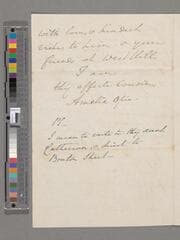 with love, & kindest
wishes to him, & your
friends at West Hill
I am
thy affecte cousin
Amelia Opie
PS
I mean to write to thy
Catherine & direct to
Bruton Street—